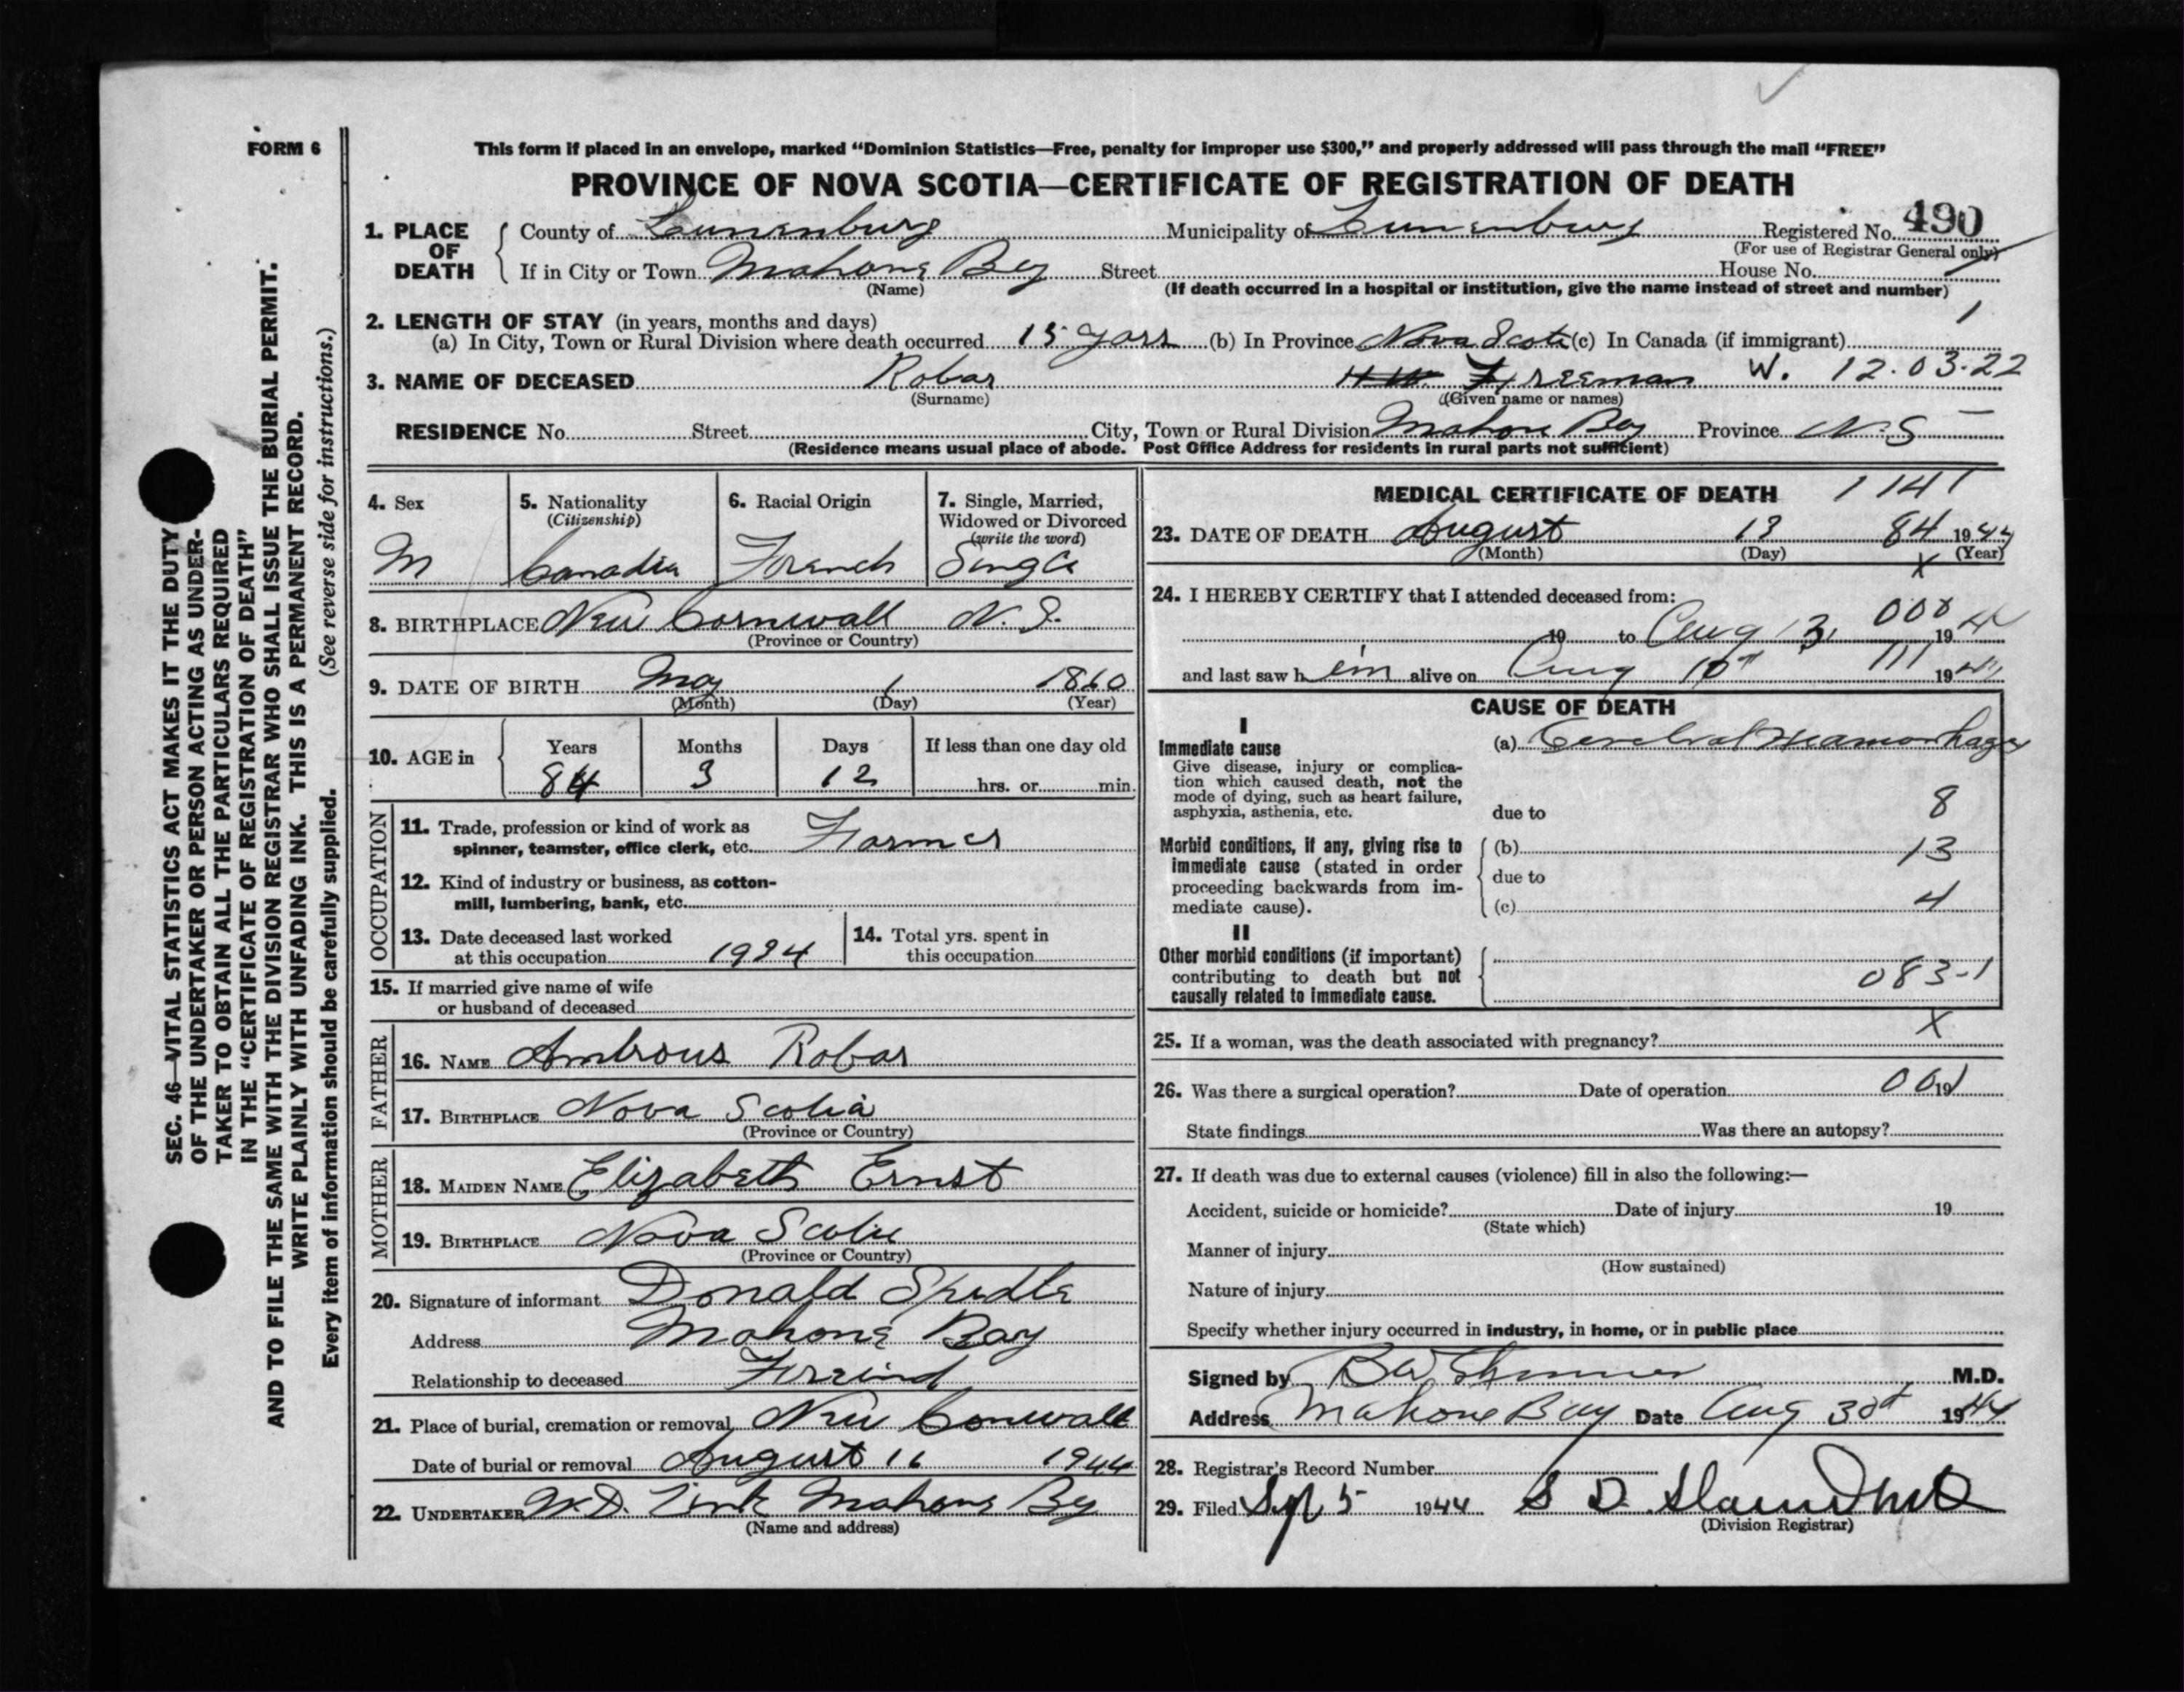 FORM 6
This form if placed in an envelope, marked “Dominion Statistics—Free, penalty for improper use $300,” and properly addressed will pass through the mail “FREE”
PROVINCE OF NOVA SCOTIA—CERTIFICATE OF REGISTRATION OF DEATH
1. PLACE OF DEATH County of Lunenburg Municipality of Lunenburg Registered No. 490
(For use of Registrar General only)
If in City or Town Mahone Bay Street House No.
(Name) (If death occurred in a hospital or institution, give the name instead of street and number)
2. LENGTH OF STAY (in years, months and days) 1
(a) In City, Town or Rural Division where death occurred 15 years (b) In Province Nova Scotia (c) In Canada (if immigrant)
3. NAME OF DECEASED Robar Freeman W. 12.03.22
(Surname) (Given name or names)
RESIDENCE No. Street City, Town or Rural Division Mahone Bay Province N.S
(Residence means usual place of abode. Post Office Address for residents in rural parts not sufficient)
4. Sex
M
5. Nationality
(Citizenship)
Canadia
6. Racial Origin
French
7. Single, Married,
Widowed or Divorced
(write the word)
Single
8. BIRTHPLACE New Cornwall N.S.
(Province or Country)
9. DATE OF BIRTH May 1 1860
(Month) (Day) (Year)
10. AGE in Years Months Days If less than one day old
84 3 12 hrs. or min.
OCCUPATION
11. Trade, profession or kind of work as
spinner, teamster, office clerk, etc. Farmer
12. Kind of industry or business, as cotton-
mill, lumbering, bank, etc.
13. Date deceased last worked
at this occupation 1934
14. Total yrs. spent in
this occupation
15. If married give name of wife
or husband of deceased
FATHER
16. NAME Ambrous Robar
17. BIRTHPLACE Nova Scotia
(Province or Country)
MOTHER
18. MAIDEN NAME Elizabeth Ernst
19. BIRTHPLACE Nova Scotia
(Province or Country)
20. Signature of informant Donald Spidle
Address Mahone Bay
Relationship to deceased Freind
21. Place of burial, cremation or removal New Cornwall
Date of burial or removal August 16 1944
22. UNDERTAKER W.D. Zink Mahone Bay
(Name and address)
MEDICAL CERTIFICATE OF DEATH 1141
23. DATE OF DEATH August 13 84 1944
(Month) (Day) (Year)
X
24. I HEREBY CERTIFY that I attended deceased from:
19 to Aug 13, 000 1944
and last saw him alive on Aug 10th 111 1944
CAUSE OF DEATH
I
Immediate cause
Give disease, injury or complica-
tion which caused death, not the
mode of dying, such as heart failure,
asphyxia, asthenia, etc.
(a) Cerebral Heamorhage
8
due to
Morbid conditions, if any, giving rise to
immediate cause (stated in order
proceeding backwards from im-
mediate cause).
(b) 13
due to
(c) 4
II
Other morbid conditions (if important)
contributing to death but not
causally related to immediate cause.
083-1
X
25. If a woman, was the death associated with pregnancy?
26. Was there a surgical operation? Date of operation 19
State findings Was there an autopsy?
27. If death was due to external causes (violence) fill in also the following:—
Accident, suicide or homicide? Date of injury 19
(State which)
Manner of injury
(How sustained)
Nature of injury
Specify whether injury occurred in industry, in home, or in public place
Signed by M.D.
Address Mahone Bay Date Aug 30th 1944
28. Registrar's Record Number
29. Filed Sept 5 1944 S D
(Division Registrar)
SEC. 46—VITAL STATISTICS ACT MAKES IT THE DUTY
OF THE UNDERTAKER OR PERSON ACTING AS UNDER-
TAKER TO OBTAIN ALL THE PARTICULARS REQUIRED
IN THE “CERTIFICATE OF REGISTRATION OF DEATH”
AND TO FILE THE SAME WITH THE DIVISION REGISTRAR WHO SHALL ISSUE THE BURIAL PERMIT.
WRITE PLAINLY WITH UNFADING INK. THIS IS A PERMANENT RECORD.
Every item of information should be carefully supplied. (See reverse side for instructions.)